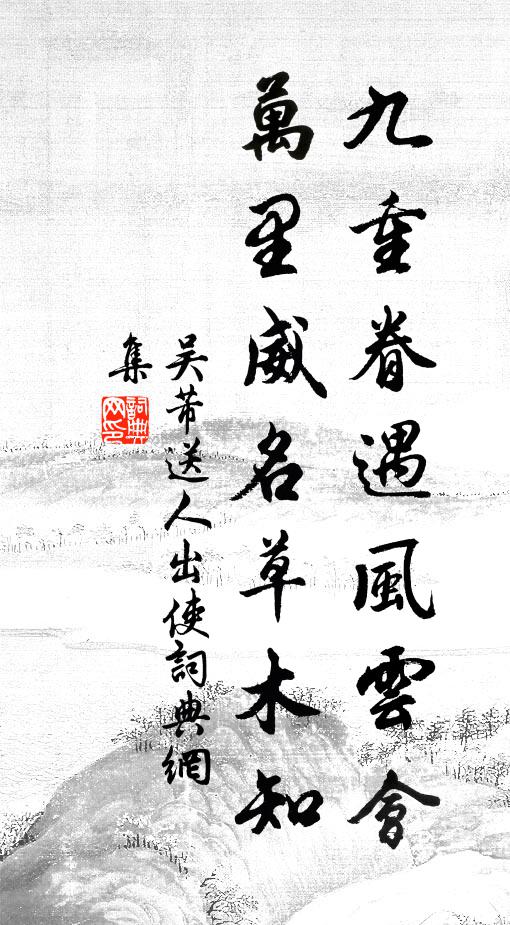 九重眷遇風雲會
萬里威名草木知
吴芾送人出使詞典網
集
詞典網印